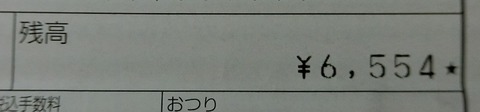 残高
¥6,554★
込手数料
おつり